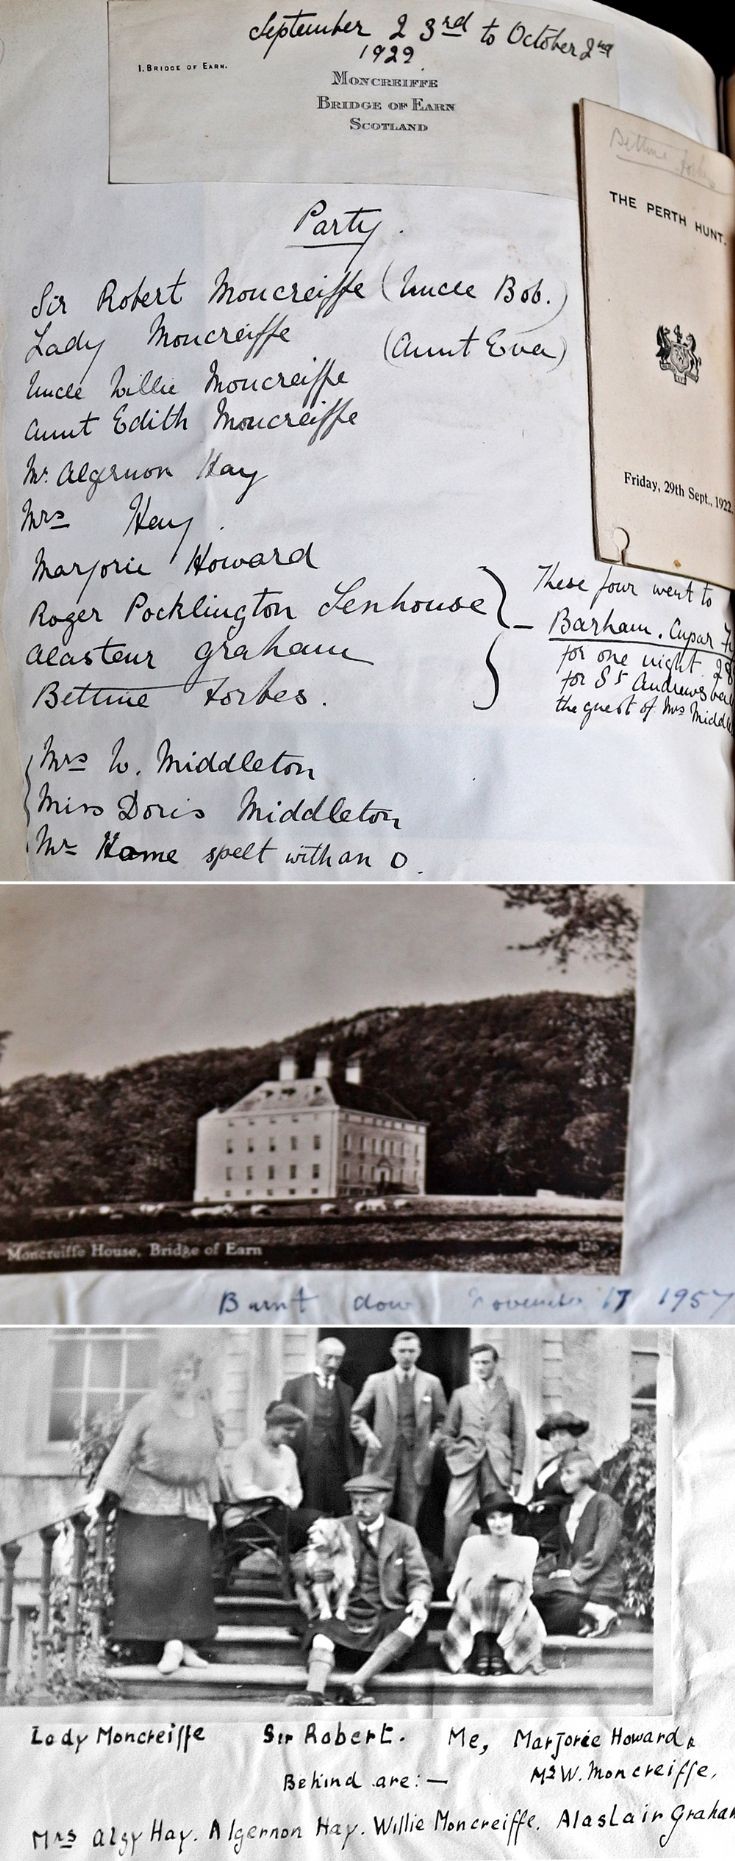 September 23rd to October 2nd
1929.
1. BRIDGE OF EARN.
MONCREIFFE
BRIDGE OF EARN
SCOTLAND
Bettine Forbes
THE PERTH HUNT.
Friday, 29th Sept., 1922.
Party.
Sir Robert Moncreiffe (Uncle Bob.)
Lady Moncreiffe (Aunt Eva)
Uncle Willie Moncreiffe
Aunt Edith Moncreiffe
Mr. Algernon Hay
Mrs Hay.
Marjorie Howard
Roger Pocklington Senhouse
Alasteur Graham
Bettine Forbes.
These four went to
Barham. Cupar
for one night
for St Andrews
the guest of Mrs
Mrs W. Middleton
Miss Doris Middleton
Mr Home spelt with an O.
Moncreiffe House, Bridge of Earn 126
Burnt down November 17 1957
Lady Moncreiffe Sir Robert. Me, Marjorie Howard &
Behind are:— Mrs W. Moncreiffe.
Mrs Algy Hay. Algernon Hay. Willie Moncreiffe. Alastair Graham